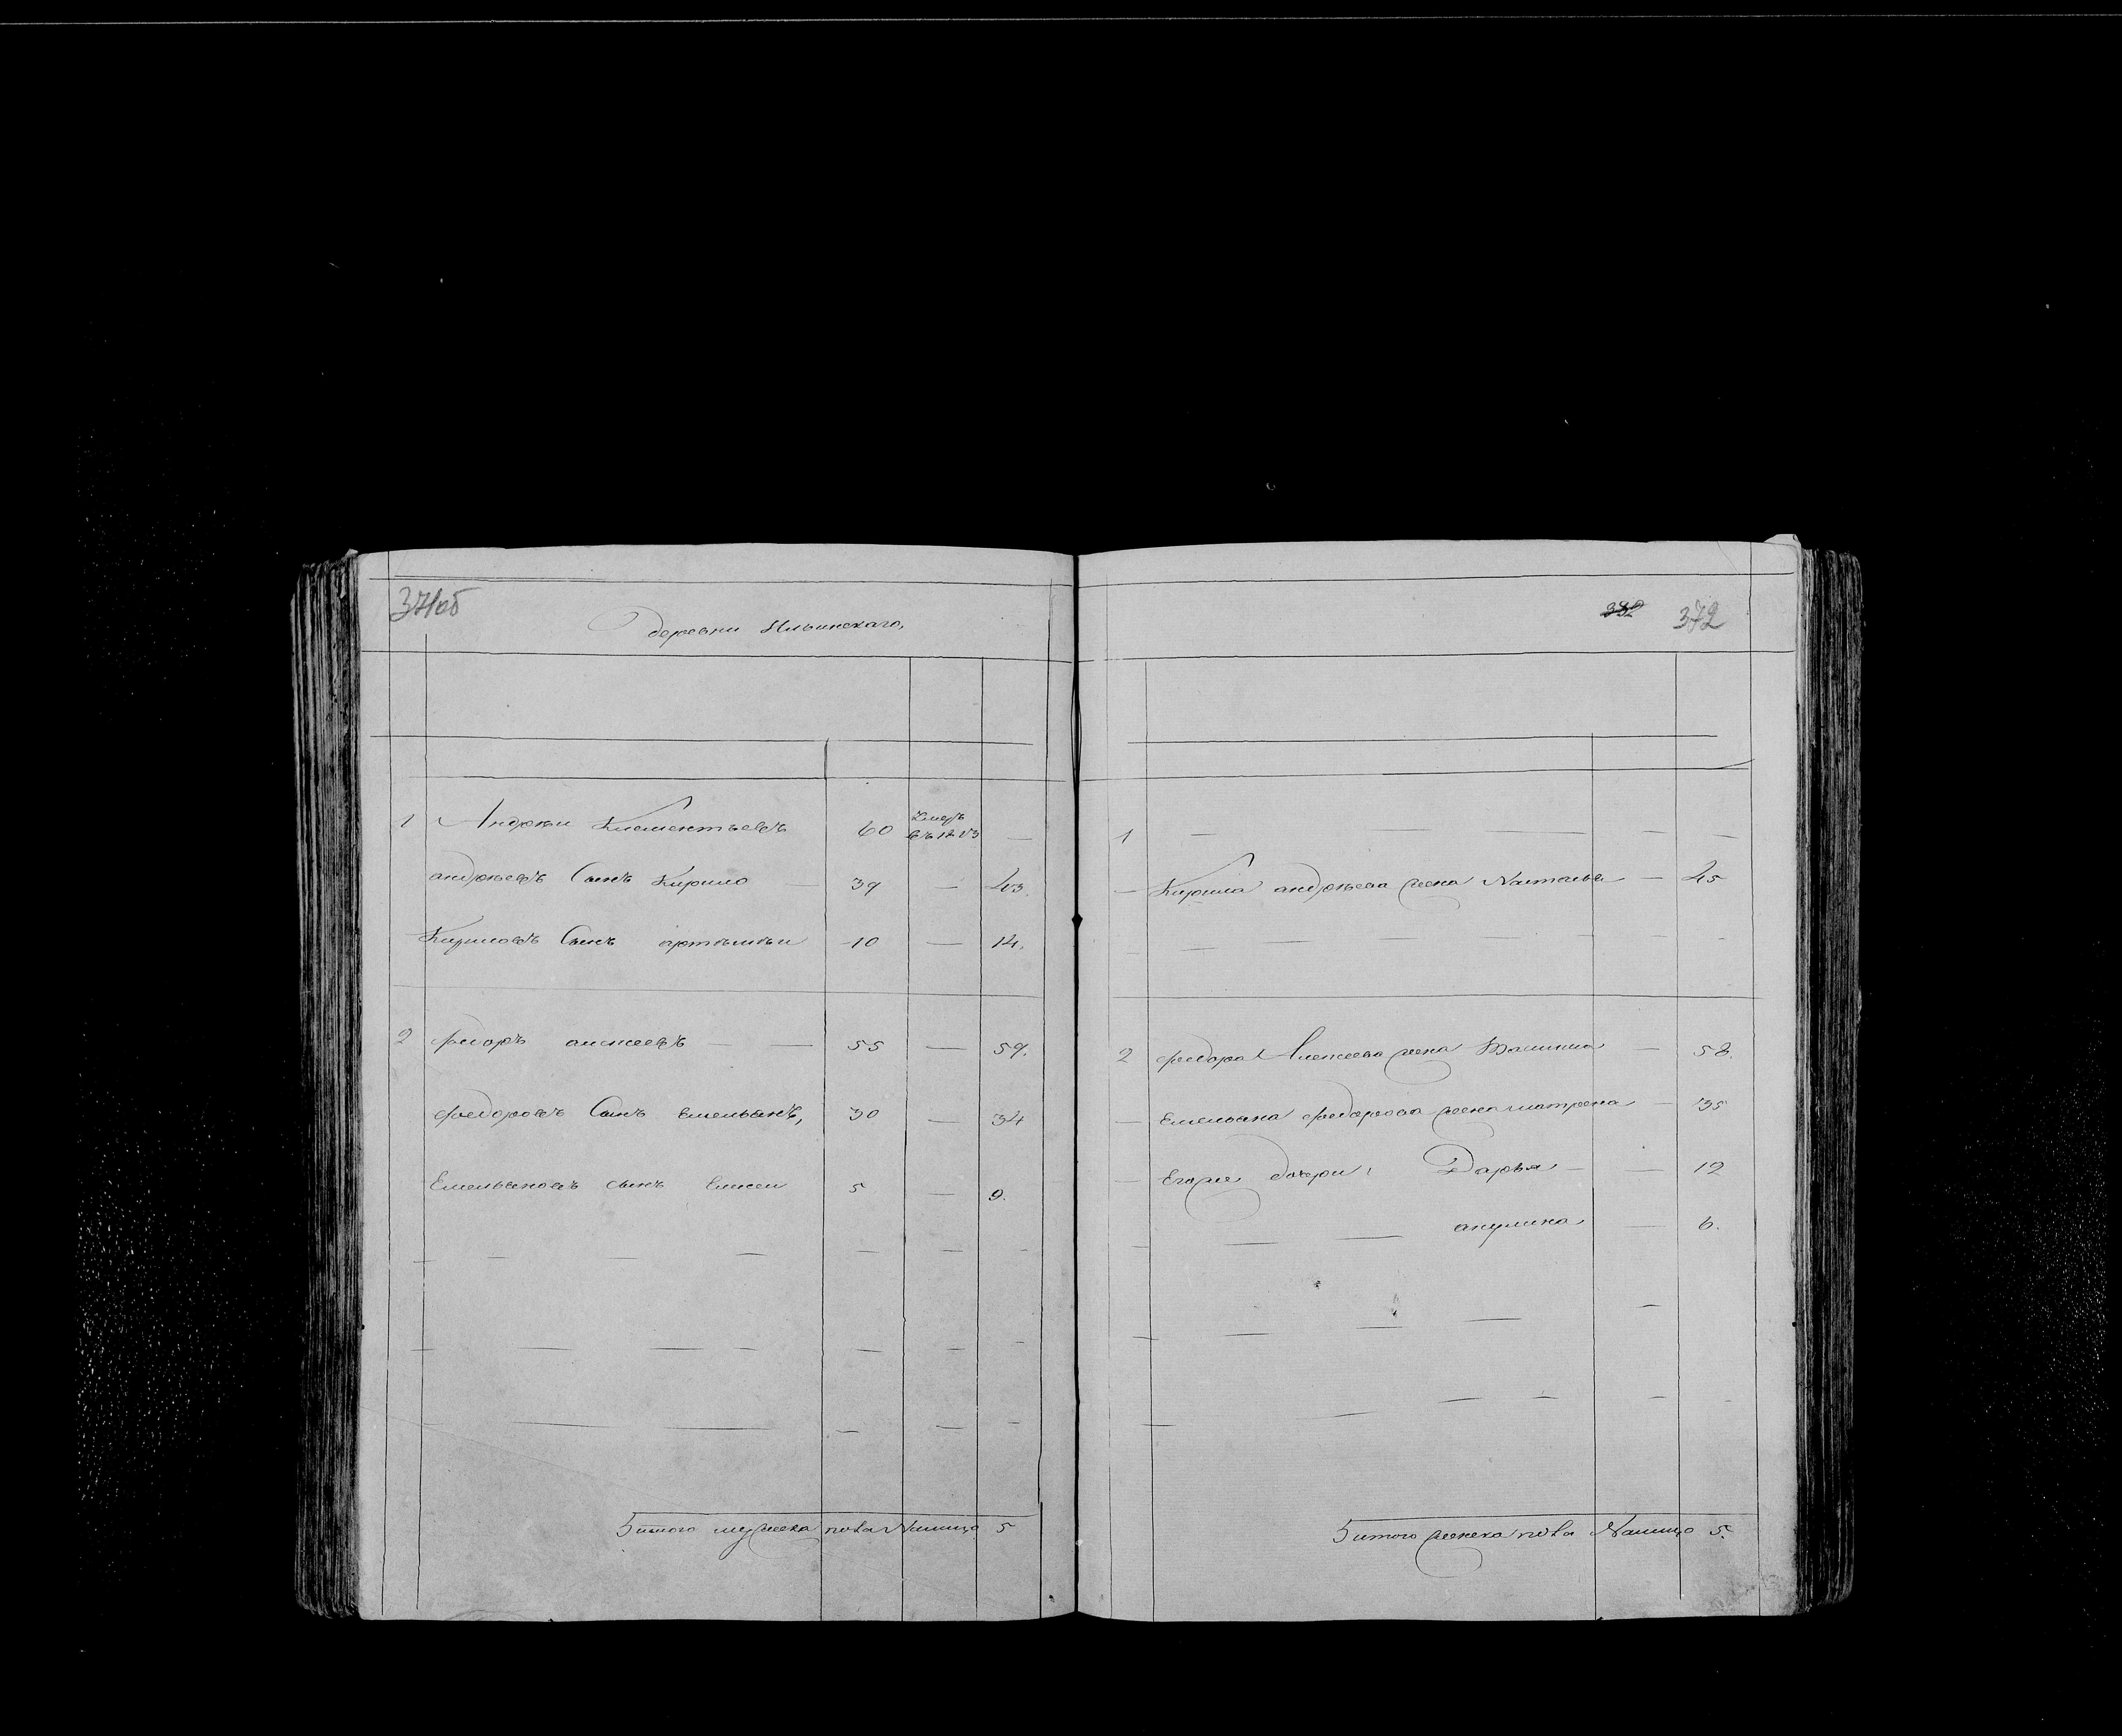 371об
деревни Ильинскаго,
1 Андрѣи Клементьевъ 60 Умеръ въ 1813 —
андрѣевъ Сынъ Кирило — 39 — 43.
Кириловъ Сынъ артѣмѣи 10 — 14.
2 федоръ алексеевъ — — 55 — 59.
федоровъ Сынъ емельянъ, 30 — 34
Емельяновъ сынъ елисеи 5 — 9.
итого мужеска пола Налицо 5
382 372
1 — — — — —
— Кирила андрѣева жена Наталья — 45
2 федора Алексеева жена — 58.
— Емельяна федорова жена матрена — 35
— Егоже дочери: Дарья — — 12
— — — акулина — 6.
итого женска пола Налицо 5.